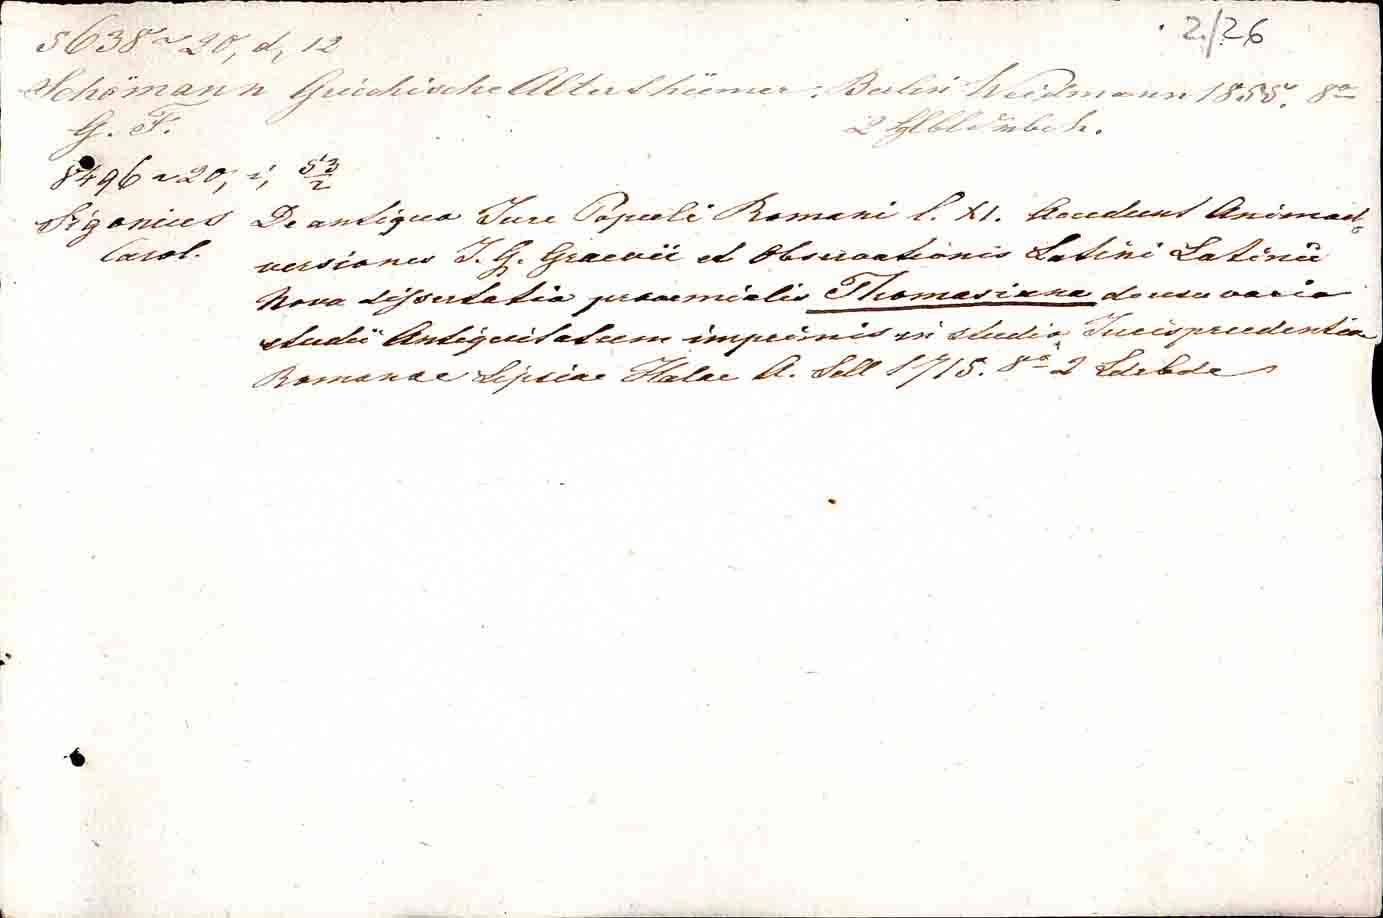 2/26
5638 ~ 20, d, 12
Schömann Griechische Alterthümer. Berlin Weidmann 1855. 8o
G. F. 2 Hlbldrbch.
8496 ~ 20, i, 53/2
Sigonius De antiquo Jure Populi Romani l. XI. Accedunt Animad-
Carol. versiones J. G. Graevii et Observationis Latini Latinii
Nova dissertatio prooemialis Thomasiana de usu vario
studii Antiquitatum imprimis in studio Jurisprudentiae
Romanae Lipsiae Halae A. Sell 1715. 8o 2 Ldrbde